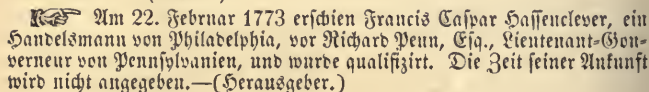 ☞ Am 22. Februar 1773 erschien Francis Caspar Hassenclever, ein
Handelsmann von Philadelphia, vor Richard Penn, Esq., Lieutenant-Gou-
verneur von Pennsylvanien, und wurde qualifizirt. Die Zeit seiner Ankunft
wird nicht angegeben.—(Herausgeber.)